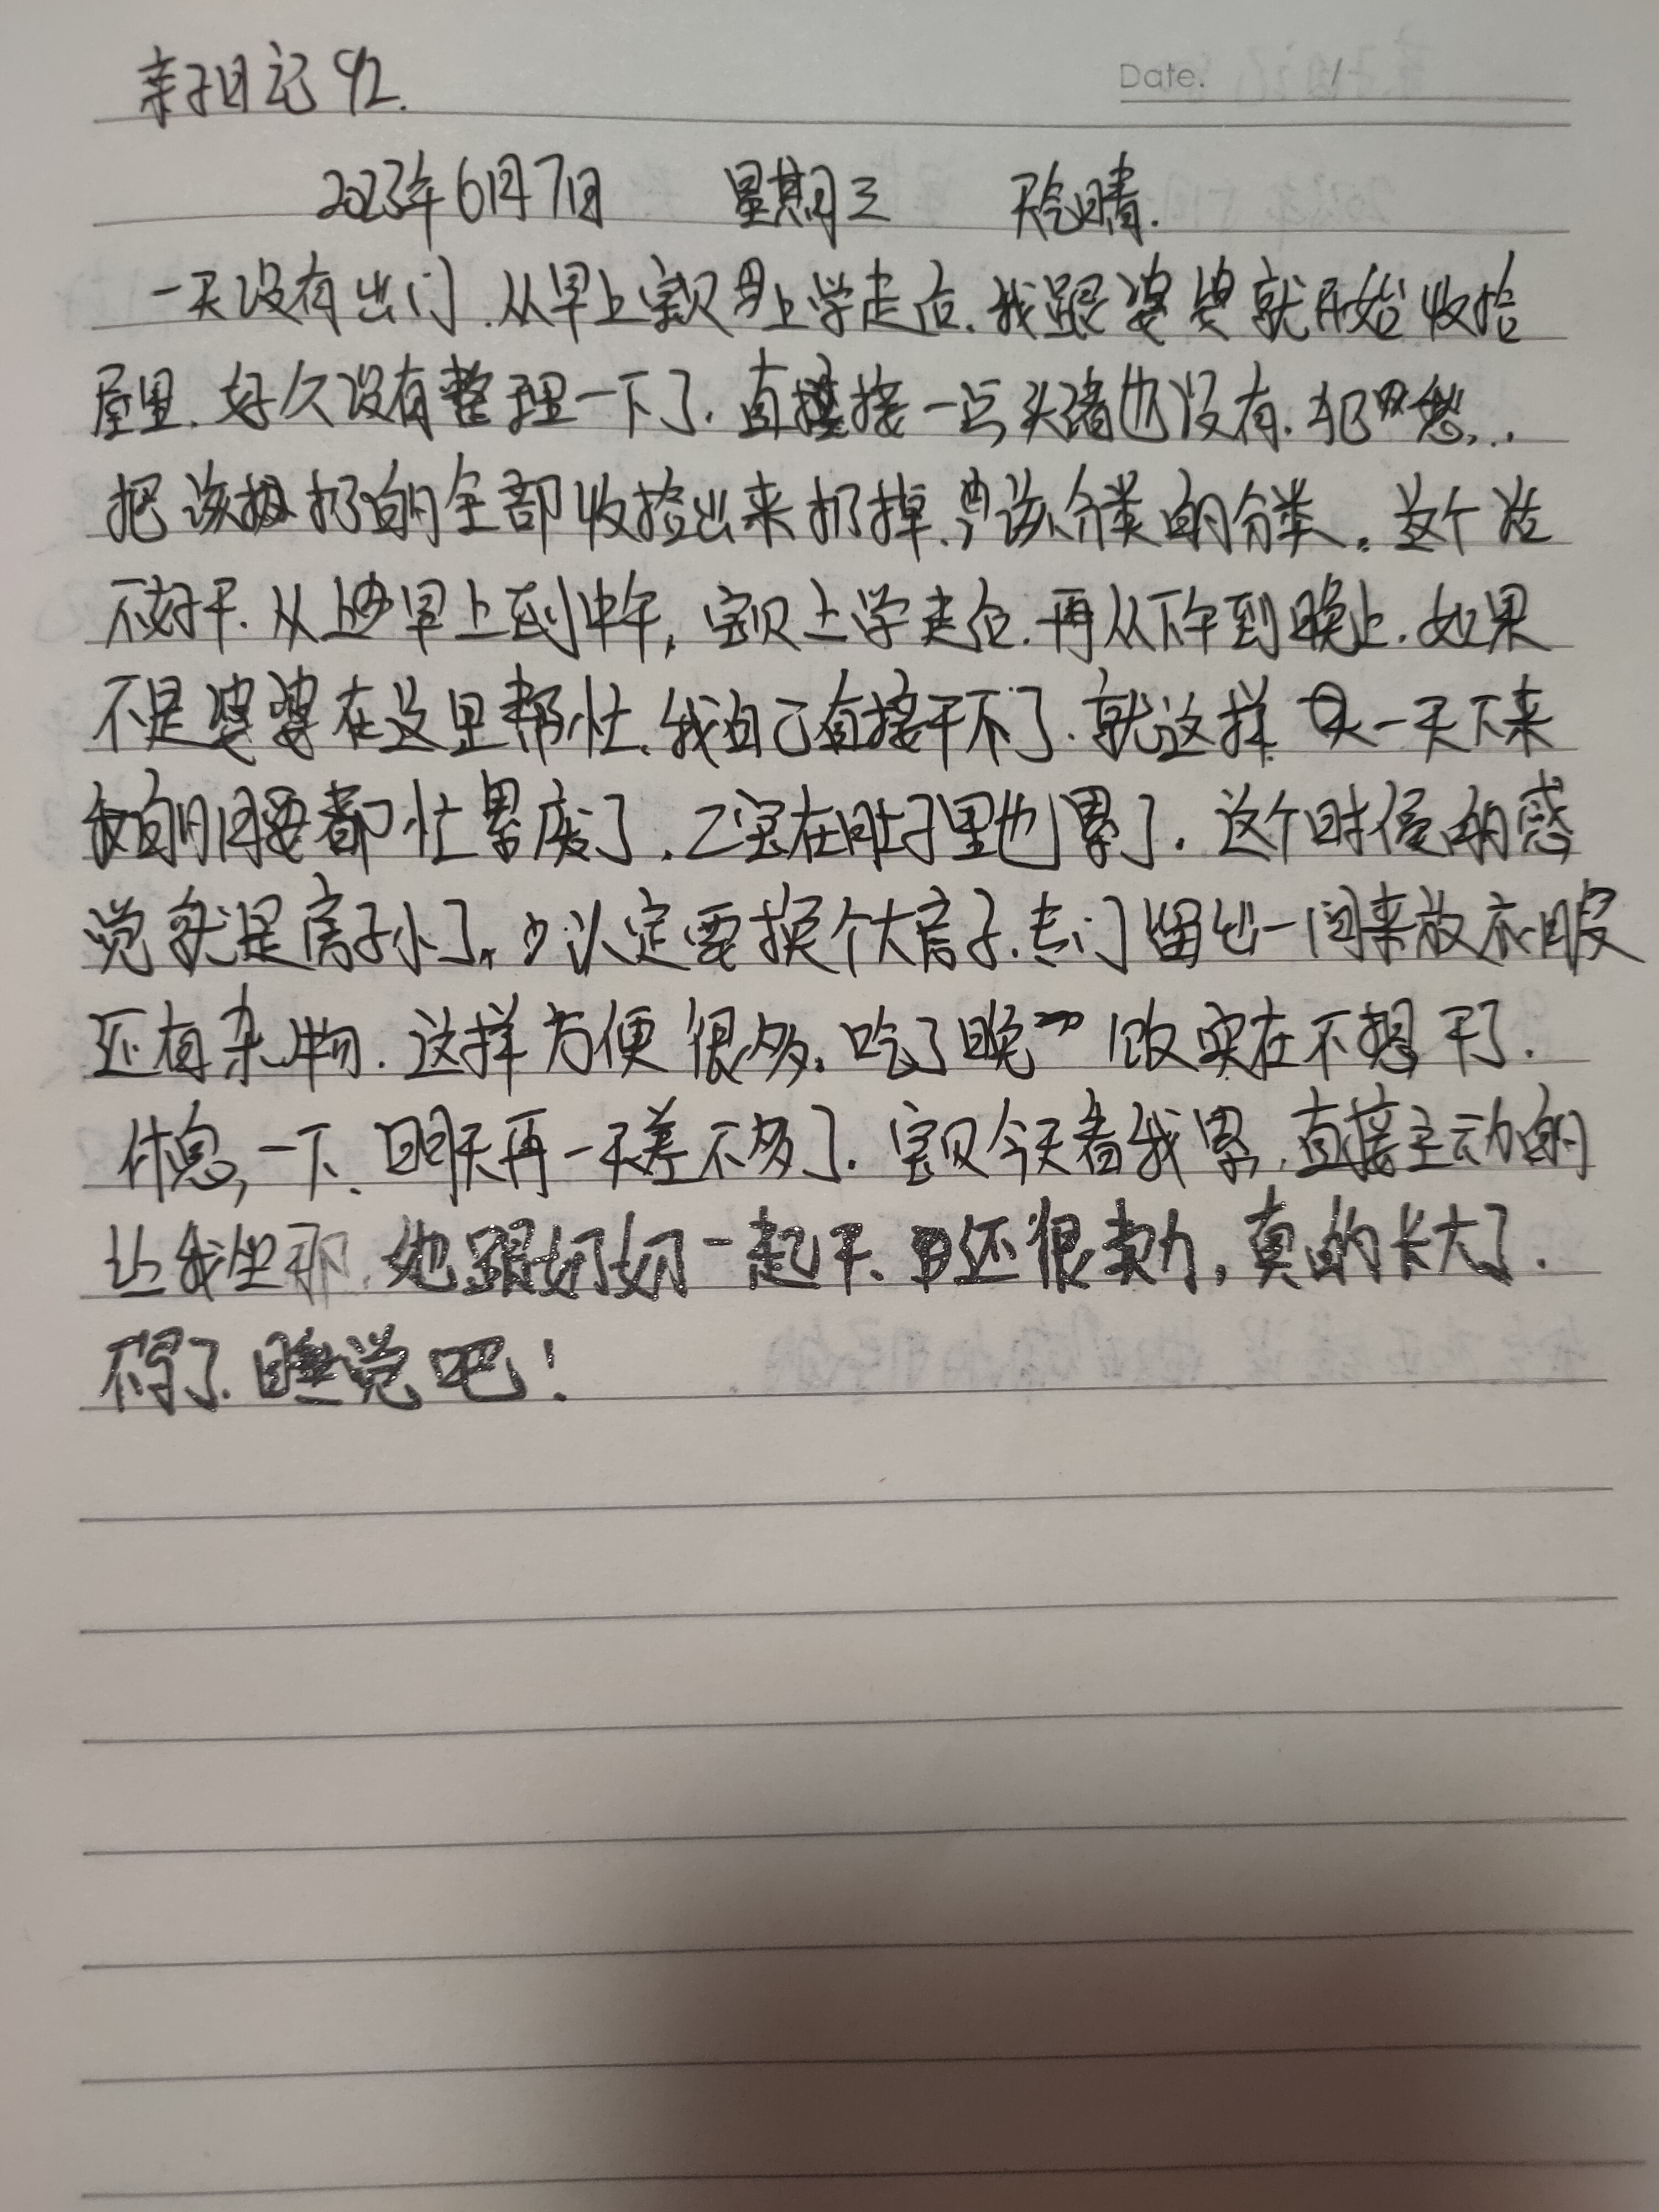 亲子日记 92.
Date.
2023年6月7日 星期三 天气晴.
一天没有出门.从早上宝贝上学走后.我跟婆婆就开始收拾
屋里.好久没有整理一下了.直接一点头绪也没有.犯愁...
把该扔的全部收捡出来扔掉.该分类的分类。这个活
不好干.从早上到中午,宝贝上学走后.再从下午到晚上.如果
不是婆婆在这里帮忙.我自己直接干不了.就这样一天下来
我的腰都忙累废了.二宝在肚子里也累了.这个时候的感
觉就是房子小了.以定要换个大房子.专门留出一间来放衣服
还有杂物.这样方便很多.吃了晚饭实在不想干了.
休息,一下.明天再一天差不多了.宝贝今天看我累.直接主动的
让我坐那.她跟奶奶一起干.还很卖力,真的长大了.
不写了.睡觉吧!